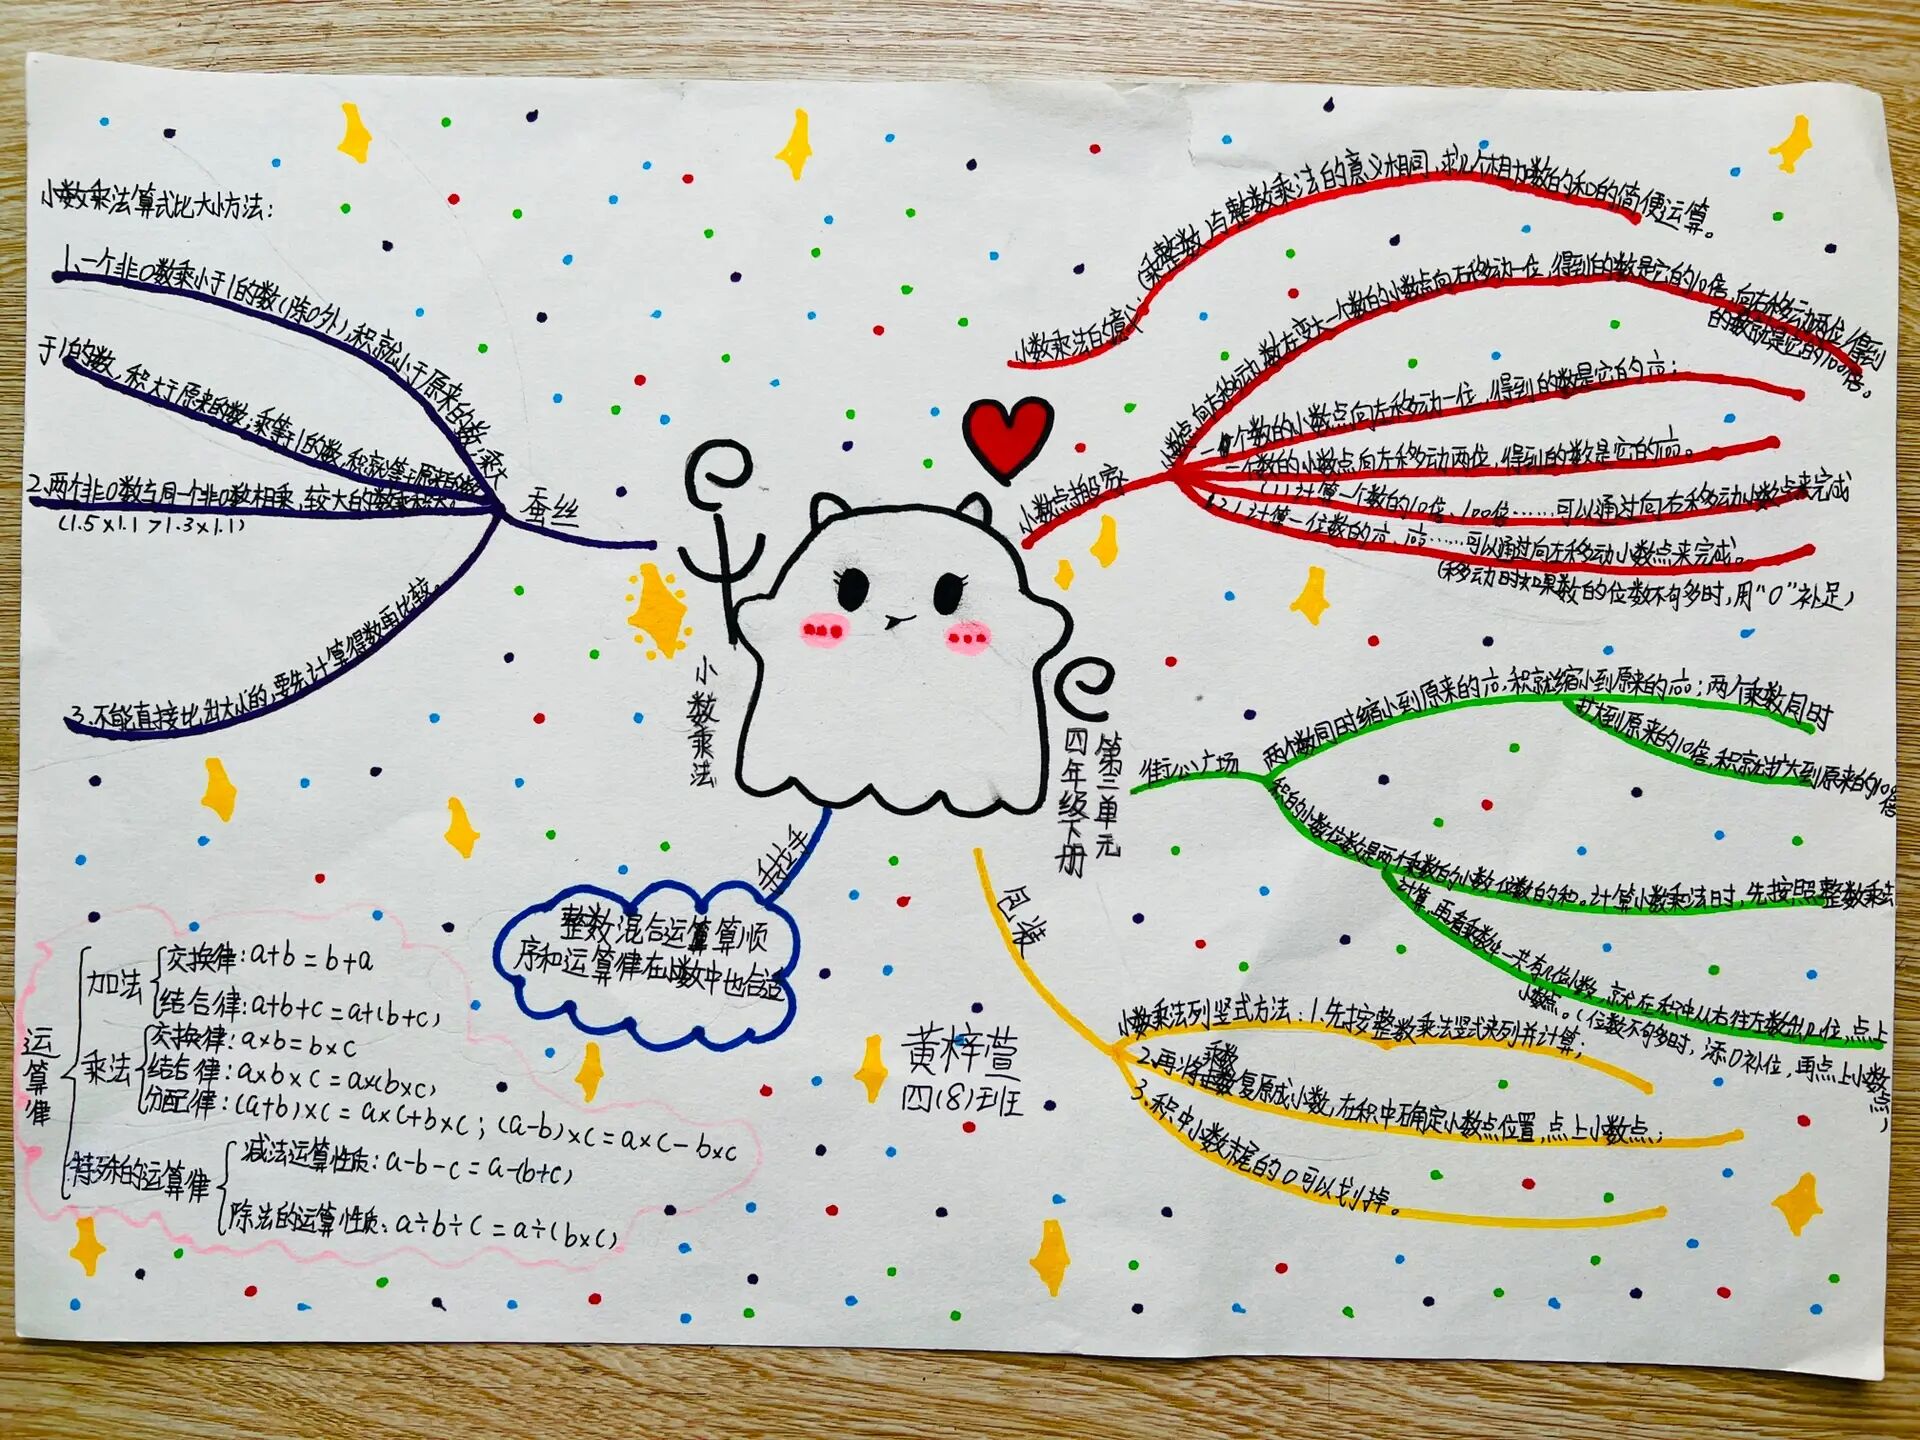 小数乘法算式比大小方法：
1.一个非0数乘小于1的数(除0外)，积就小于原来的数；乘大
于1的数，积大于原来的数；乘等于1的数，积就等于原来的数
2.两个非0数与同一个非0数相乘，较大的数乘积大。
(1.5×1.1＞1.3×1.1)
3.不能直接比出大小的，要先计算得数再比较。
蚕丝
小数乘法
四年级下册
第三单元
小数乘法的意义：(乘整数)与整数乘法的意义相同，求几个相加数的和的简便运算。
小数点搬家
小数点向右移动，数在变大一个数的小数点向右移动一位，得到的数是它的10倍，向右移动两位，得到
的数就是它的100倍。
一个数的小数点向左移动一位，得到的数是它的1/10；
一个数的小数点向左移动两位，得到的数是它的1/100。
(1)计算一个数的10倍、100倍……可以通过向右移动小数点来完成
(2)计算一位数的1/10、1/100……可以通过向左移动小数点来完成。
(移动时如果数的位数不够多时，用“0”补足)
街心广场
两个数同时缩小到原来的1/10，积就缩小到原来的1/100；两个乘数同时
扩大到原来的10倍，积就扩大到原来的10倍
积的小数位数是两个乘数的小数位数的和。计算小数乘法时，先按照整数乘法
计算，再看乘数中一共有几位小数，就在积中从右往左数出几位，点上
小数点。(位数不够多时，添0补位，再点上小数点)
手拉手
整数混合运算算顺
序和运算律在小数中也合适
包装
小数乘法列竖式方法：1.先按整数乘法竖式来列并计算；
2.再将乘数复原成小数，在积中确定小数点位置，点上小数点；
3.积中小数末尾的0可以划掉。
运算律
加法
交换律：a+b=b+a
结合律：a+b+c=a+(b+c)
乘法
交换律：a×b=b×c
结合律：a×b×c=a×(b×c)
分配律：(a+b)×c=a×c+b×c；(a-b)×c=a×c-b×c
特殊的运算律
减法运算性质：a-b-c=a-(b+c)
除法的运算性质：a÷b÷c=a÷(b×c)
黄梓萱
四(8)班